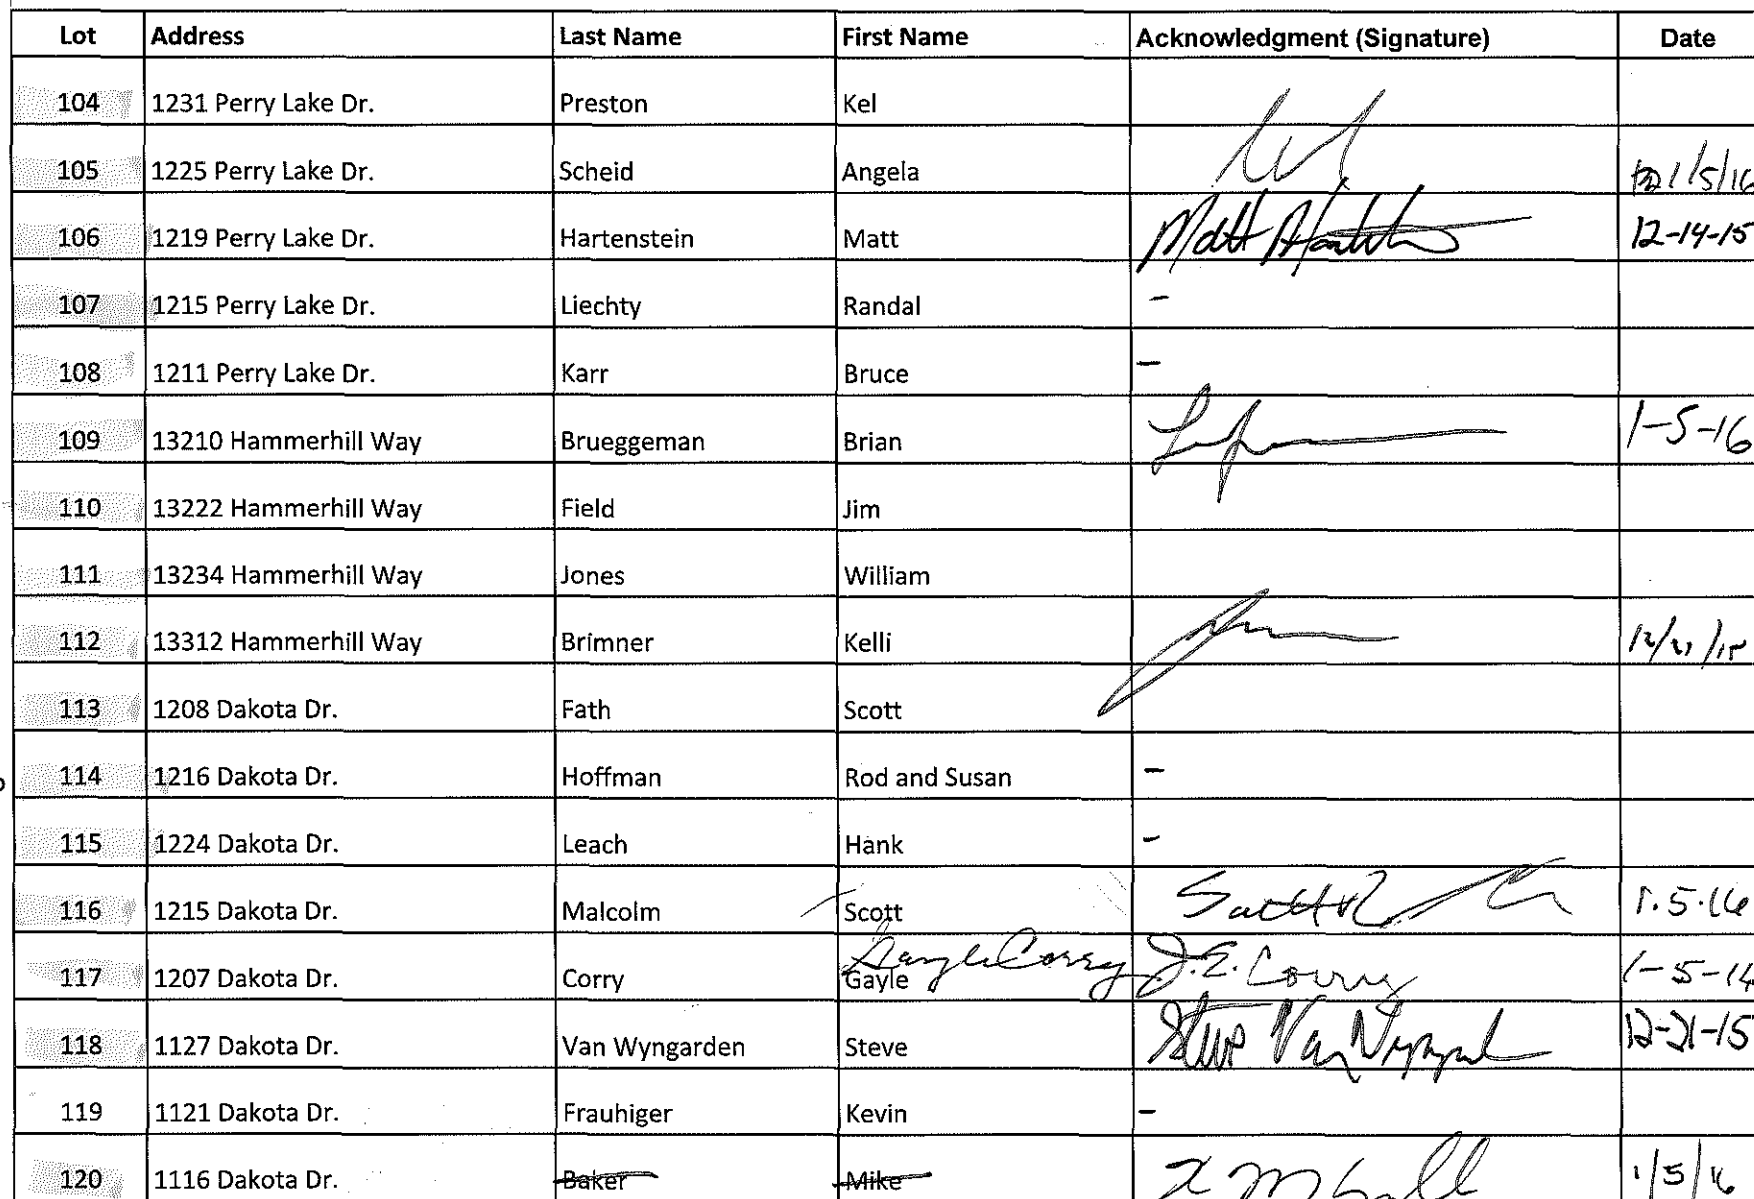 Lot Address Last Name First Name Acknowledgment (Signature) Date
104 1231 Perry Lake Dr. Preston Kel
105 1225 Perry Lake Dr. Scheid Angela 1/5/16
106 1219 Perry Lake Dr. Hartenstein Matt Matt 12-14-15
107 1215 Perry Lake Dr. Liechty Randal -
108 1211 Perry Lake Dr. Karr Bruce -
109 13210 Hammerhill Way Brueggeman Brian 1-5-16
110 13222 Hammerhill Way Field Jim
111 13234 Hammerhill Way Jones William
112 13312 Hammerhill Way Brimner Kelli 12/21/15
113 1208 Dakota Dr. Fath Scott
114 1216 Dakota Dr. Hoffman Rod and Susan -
115 1224 Dakota Dr. Leach Hank -
116 1215 Dakota Dr. Malcolm Scott Scott 1.5.16
Gayle Corry J.E. Corry
117 1207 Dakota Dr. Corry Gayle 1-5-16
118 1127 Dakota Dr. Van Wyngarden Steve Steve Van Wyngarden 12-21-15
119 1121 Dakota Dr. Frauhiger Kevin -
120 1116 Dakota Dr. Baker Mike 1/5/16